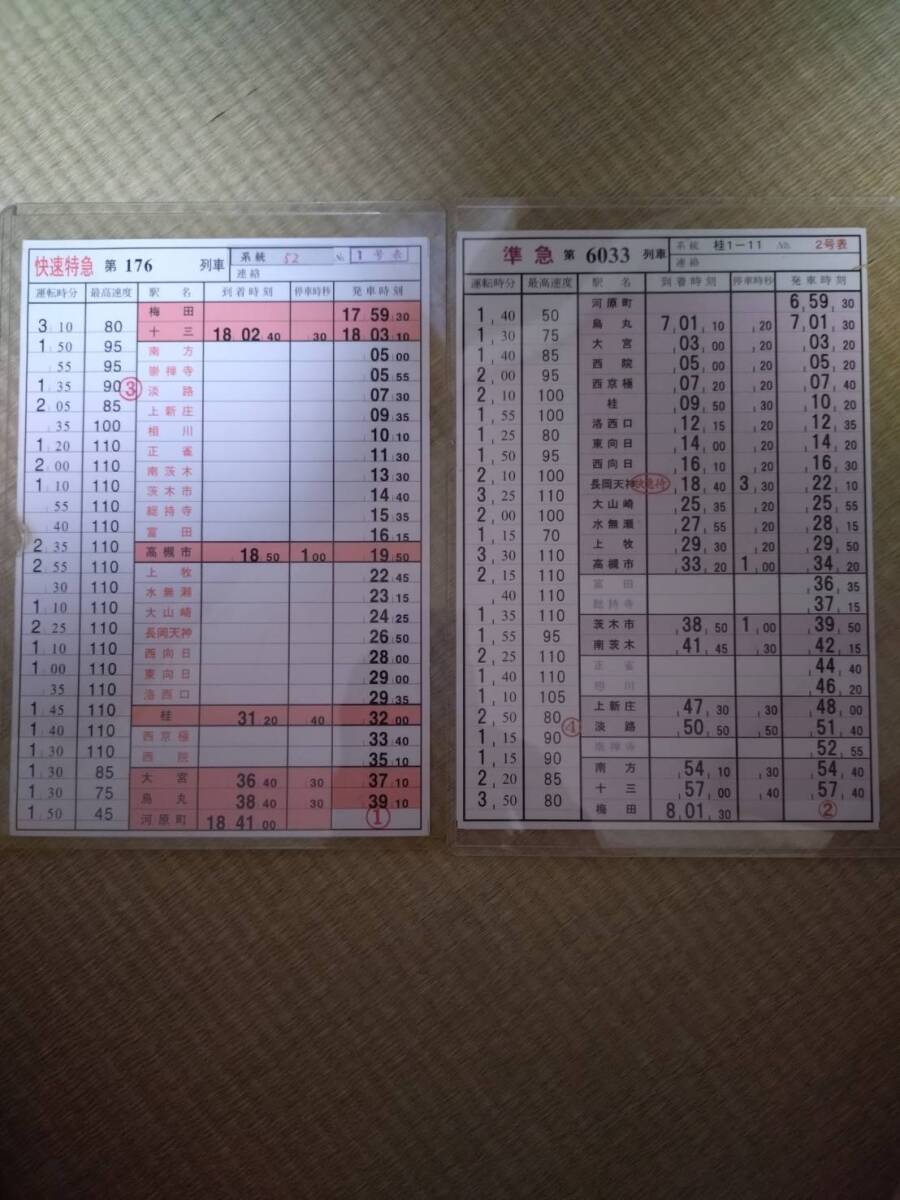 快速特急 第 176 列車 系統 52 № 1号表
連絡
運転時分 最高速度 駅名 到着時刻 停車時秒 発車時刻
梅田 17 59 30
3 10 80 十三 18 02 40 30 18 03 10
1 50 95 南方 05 00
55 95 崇禅寺 05 55
1 35 90 ③ 淡路 07 30
2 05 85 上新庄 09 35
35 100 相川 10 10
1 20 110 正雀 11 30
2 00 110 南茨木 13 30
1 10 110 茨木市 14 40
55 110 総持寺 15 35
40 110 富田 16 15
2 35 110 高槻市 18 50 1 00 19 50
2 55 110 上牧 22 45
30 110 水無瀬 23 15
1 10 110 大山崎 24 25
2 25 110 長岡天神 26 50
1 10 110 西向日 28 00
1 00 110 東向日 29 00
35 110 洛西口 29 35
1 45 110 桂 31 20 40 32 00
1 40 110 西京極 33 40
1 30 110 西院 35 10
1 30 85 大宮 36 40 30 37 10
1 30 75 烏丸 38 40 30 39 10
1 50 45 河原町 18 41 00 ①
準急 第 6033 列車 系統 桂1-11 № 2号表
連絡
運転時分 最高速度 駅名 到着時刻 停車時秒 発車時刻
河原町 6 59 30
1 40 50 烏丸 7 01 10 20 7 01 30
1 30 75 大宮 03 00 20 03 20
1 40 85 西院 05 00 20 05 20
2 00 95 西京極 07 20 20 07 40
2 10 100 桂 09 50 30 10 20
1 55 100 洛西口 12 15 20 12 35
1 25 80 東向日 14 00 20 14 20
1 50 95 西向日 16 10 20 16 30
2 10 100 長岡天神 快急待 18 40 3 30 22 10
3 25 110 大山崎 25 35 20 25 55
2 00 100 水無瀬 27 55 20 28 15
1 15 70 上牧 29 30 20 29 50
3 30 110 高槻市 33 20 1 00 34 20
2 15 110 富田 36 35
40 110 総持寺 37 15
1 35 110 茨木市 38 50 1 00 39 50
1 55 95 南茨木 41 45 30 42 15
2 25 110 正雀 44 40
1 40 110 相川 46 20
1 10 105 上新庄 47 30 30 48 00
2 50 80 ④ 淡路 50 50 50 51 40
1 15 90 崇禅寺 52 55
1 15 90 南方 54 10 30 54 40
2 20 85 十三 57 00 40 57 40
3 50 80 梅田 8 01 30 ②